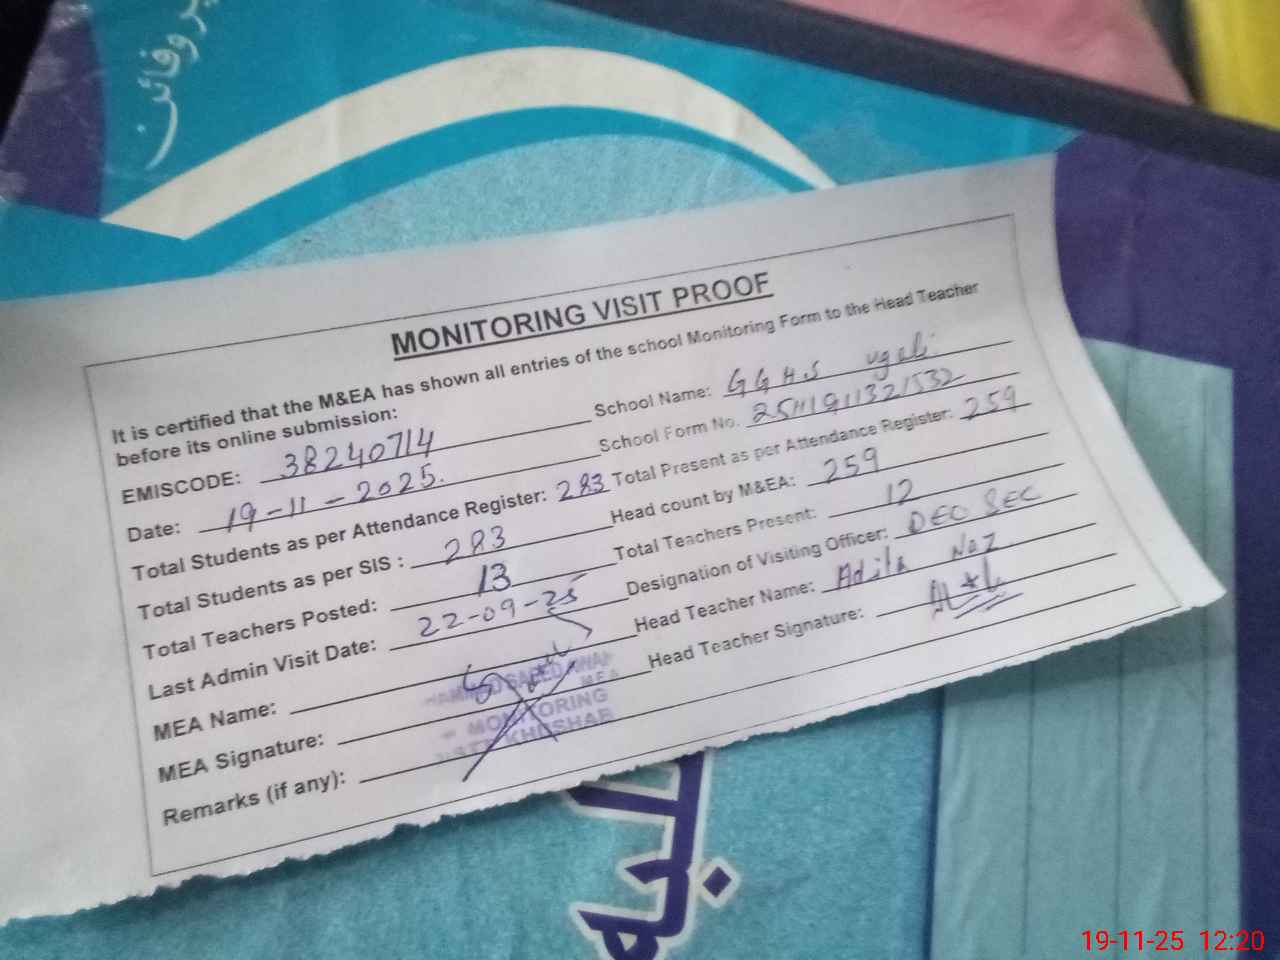 وفائن
MONITORING VISIT PROOF
It is certified that the M&EA has shown all entries of the school Monitoring Form to the Head Teacher
before its online submission:
EMISCODE: 38240714 School Name: GGHS Ugali
Date: 19-11-2025. School Form No. 25H1911321532
Total Students as per Attendance Register: 283 Total Present as per Attendance Register: 259
Total Students as per SIS : 283 Head count by M&EA: 259
Total Teachers Posted: 13 Total Teachers Present: 12
Last Admin Visit Date: 22-09-25 Designation of Visiting Officer: DEO SEC
MEA Name: Head Teacher Name: Adila Naz
MEA Signature: Head Teacher Signature:
SAEED AWAN
MEA
MONITORING
KHUSHAB
Remarks (if any):
19-11-25 12:20